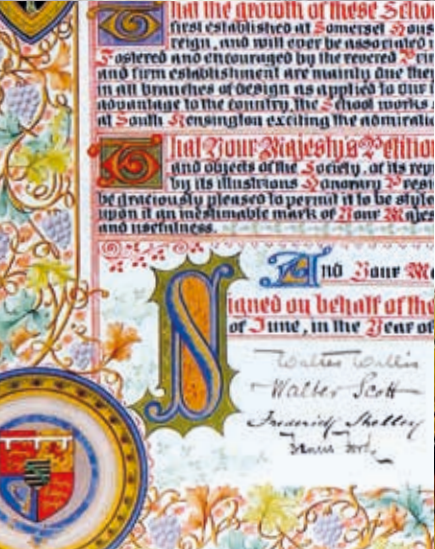 That the growth of these Schoo
first established at Somerset Hous
reign, and will ever be associated
Fostered and encouraged by the revered Prin
and firm establishment are mainly due ther
in all branches of design as applied to our
advantage to the country, the School works
at South Kensington exciting the admirati
That Your Majesty's Petition
and objects of the Society, of its rep
by its illustrious Honorary Presi
be graciously pleased to permit it to be style
upon it an inestimable mark of Your Majes
and usefulness.
And Your Ma
Signed on behalf of the
of June, in the Year of
Walter Wallis
Walter Scott
Frederick Shelley